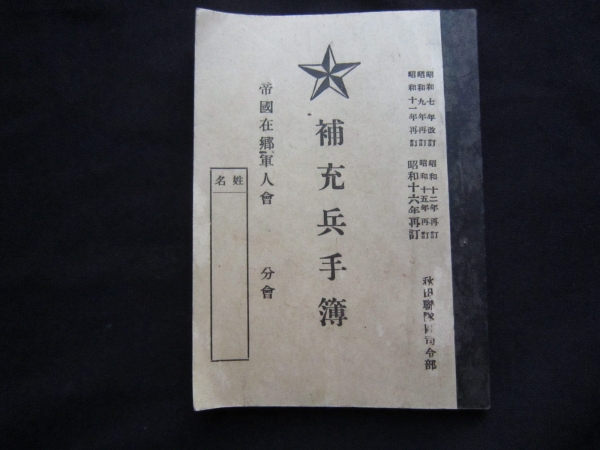 昭和七年改訂
昭和九年再訂
昭和十一年再訂
昭和十二年再訂
昭和十五年再訂
昭和十六年再訂
秋田聯隊區司令部
補充兵手簿
帝國在鄕軍人會 分會
姓名